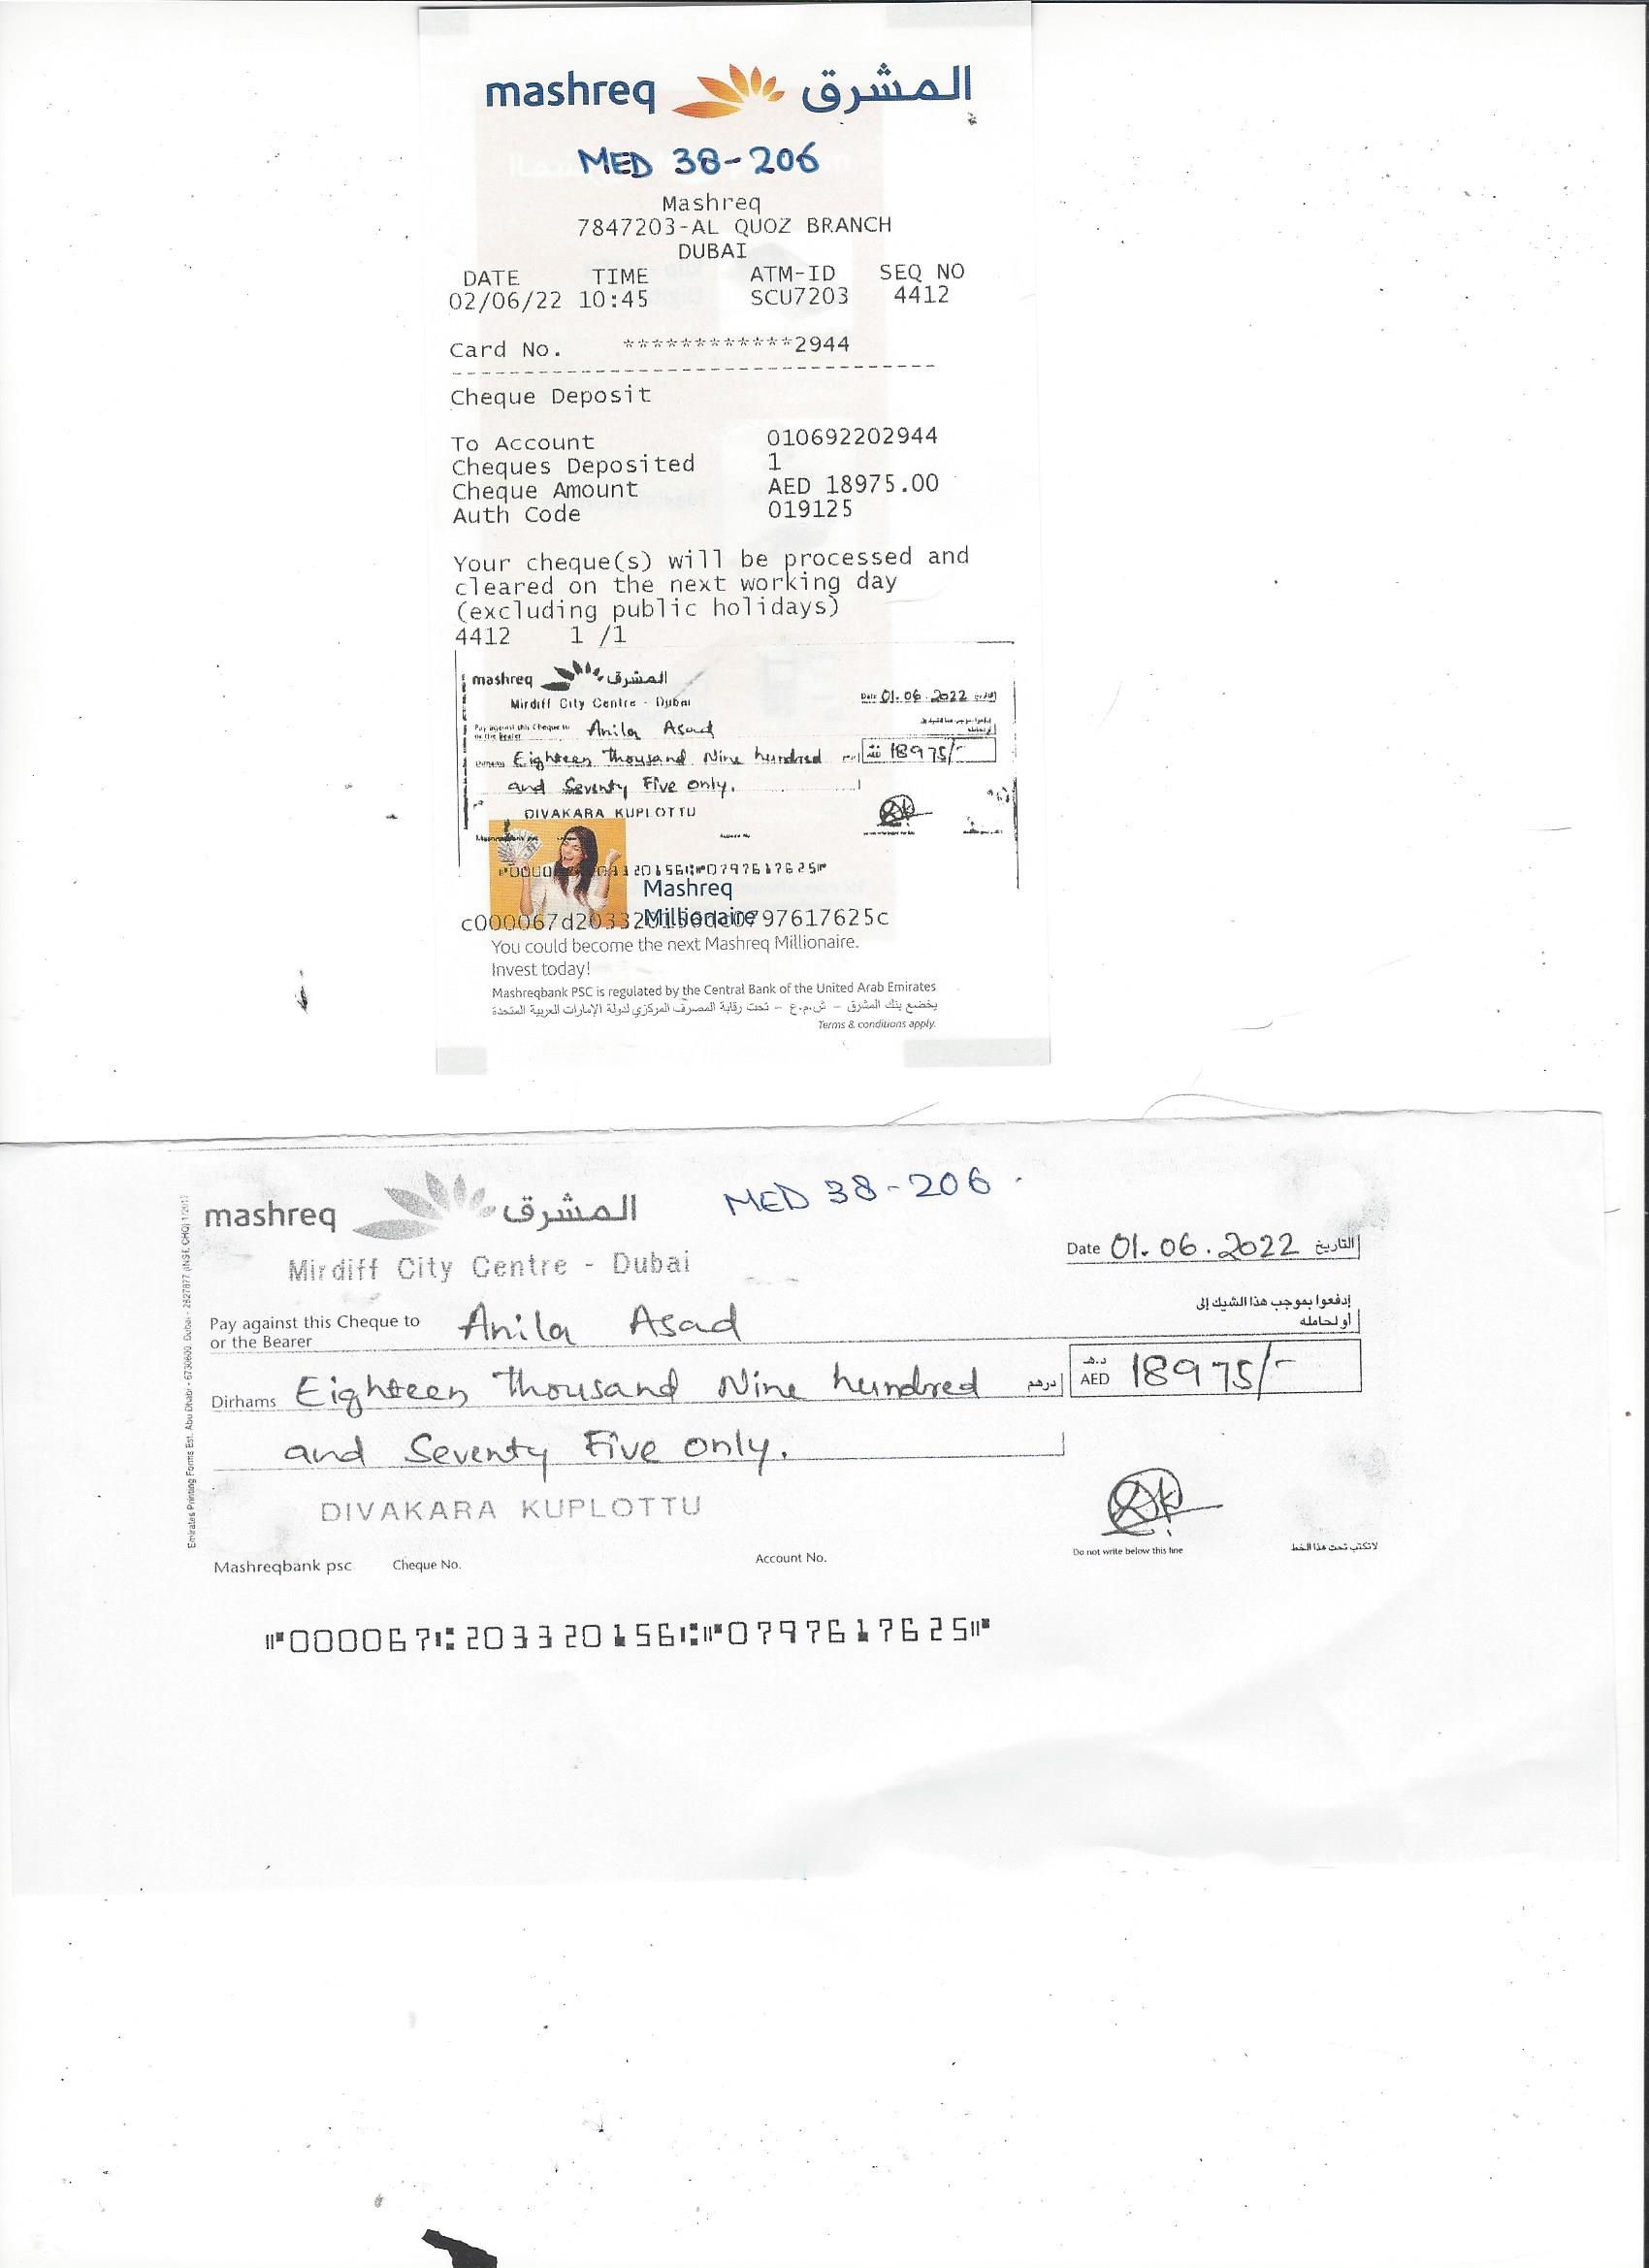 mashreq المشرق
MED 38-206
Mashreq
7847203-AL QUOZ BRANCH
DUBAI
DATE TIME ATM-ID SEQ NO
02/06/22 10:45 SCU7203 4412
Card No. ************2944
Cheque Deposit
To Account 010692202944
Cheques Deposited 1
Cheque Amount AED 18975.00
Auth Code 019125
Your cheque(s) will be processed and
cleared on the next working day
(excluding public holidays)
4412 1 /1
mashreq المشرق
Mirdiff City Centre - Dubai
Date 01.06.2022 التاريخ
Pay against this Cheque to Anila Asad
or the Bearer
Dirhams Eighteen Thousand Nine hundred 18975/-
and Seventy Five only.
DIVAKARA KUPLOTTU
Mashreq
Millionaire
You could become the next Mashreq Millionaire.
Invest today!
Mashreqbank PSC is regulated by the Central Bank of the United Arab Emirates
يخضع بنك المشرق – ش.م.ع – تحت رقابة المصرف المركزي لدولة الإمارات العربية المتحدة
Terms & conditions apply.
mashreq المشرق
MED 38-206.
Mirdiff City Centre - Dubai
Date 01.06.2022 التاريخ
Pay against this Cheque to Anila Asad إدفعوا بموجب هذا الشيك إلى
or the Bearer أو لحامله
Dirhams Eighteen Thousand Nine hundred درهم د.هـ AED 18975/-
and Seventy Five only.
DIVAKARA KUPLOTTU
Mashreqbank psc Cheque No. Account No.
Do not write below this line لا تكتب تحت هذا الخط
⑈000067⑆203320156⑆⑈0797617625⑈